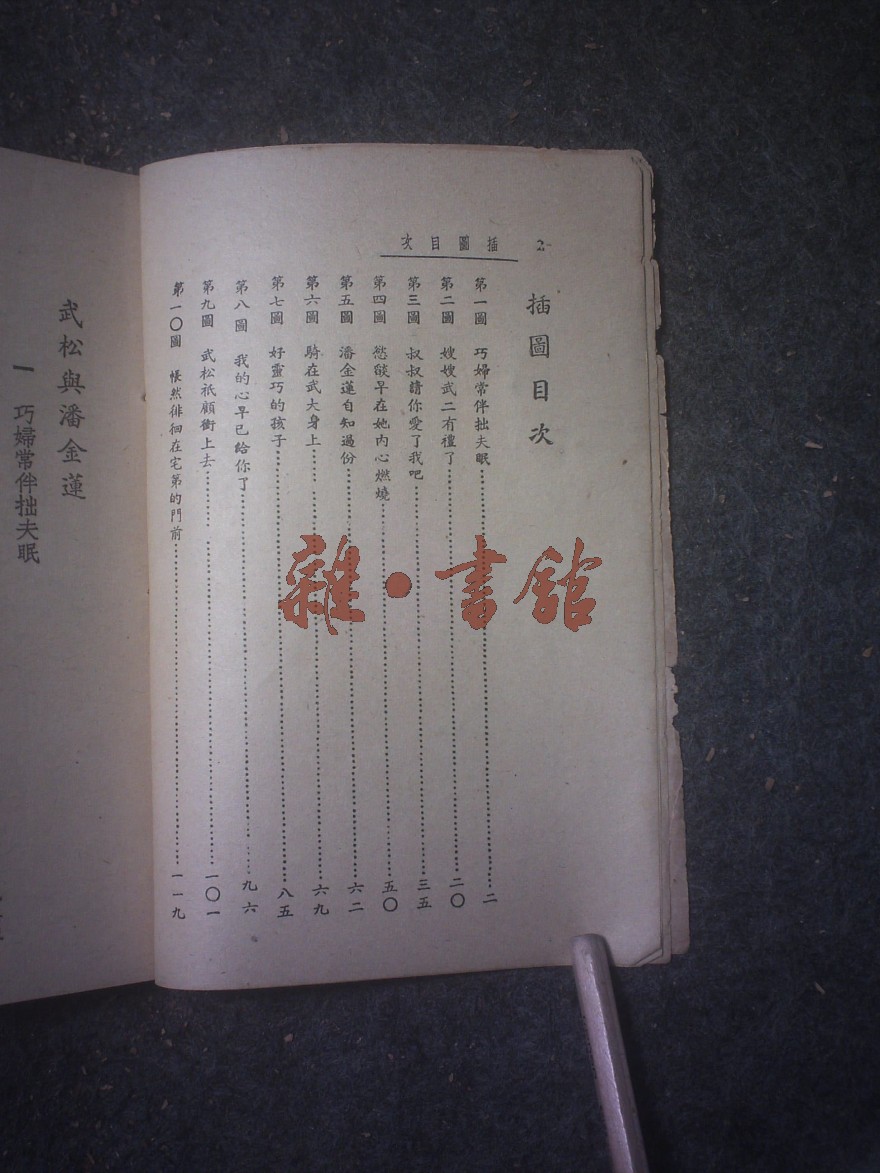 插圖目次 2
插圖目次
第一圖 巧婦常伴拙夫眠……二
第二圖 嫂嫂武二有禮了……二〇
第三圖 叔叔請你愛了我吧……三五
第四圖 慾燄早在她內心燃燒……五〇
第五圖 潘金蓮自知過份……六二
第六圖 騎在武大身上……六九
第七圖 好靈巧的孩子……八五
第八圖 我的心早已給你了……九六
第九圖 武松祇顧衝上去……一〇一
第一〇圖 悵然徘徊在宅第的門前……一一九
武松與潘金蓮
一 巧婦常伴拙夫眠
雜·書館